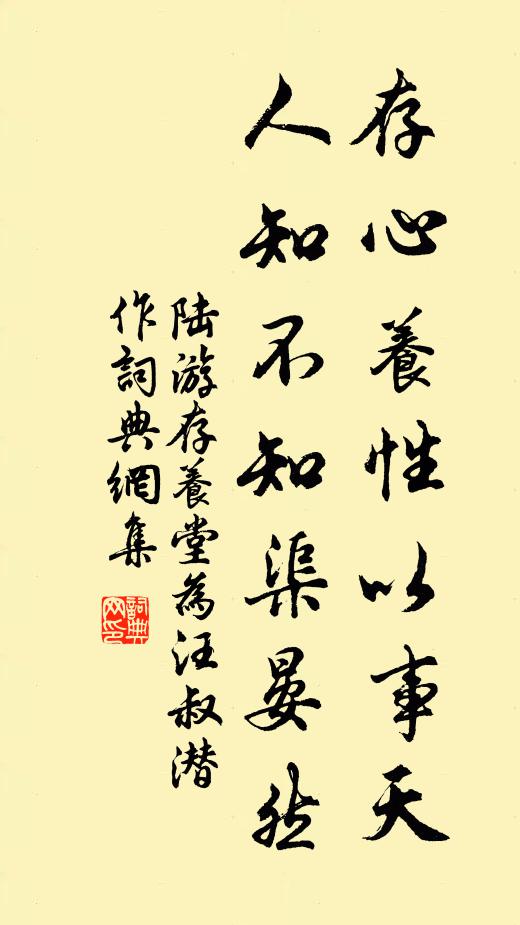 存心養性以事天
人知不知渠晏然
陸游存養堂為汪叔潛
作詞典網集
詞典
网印